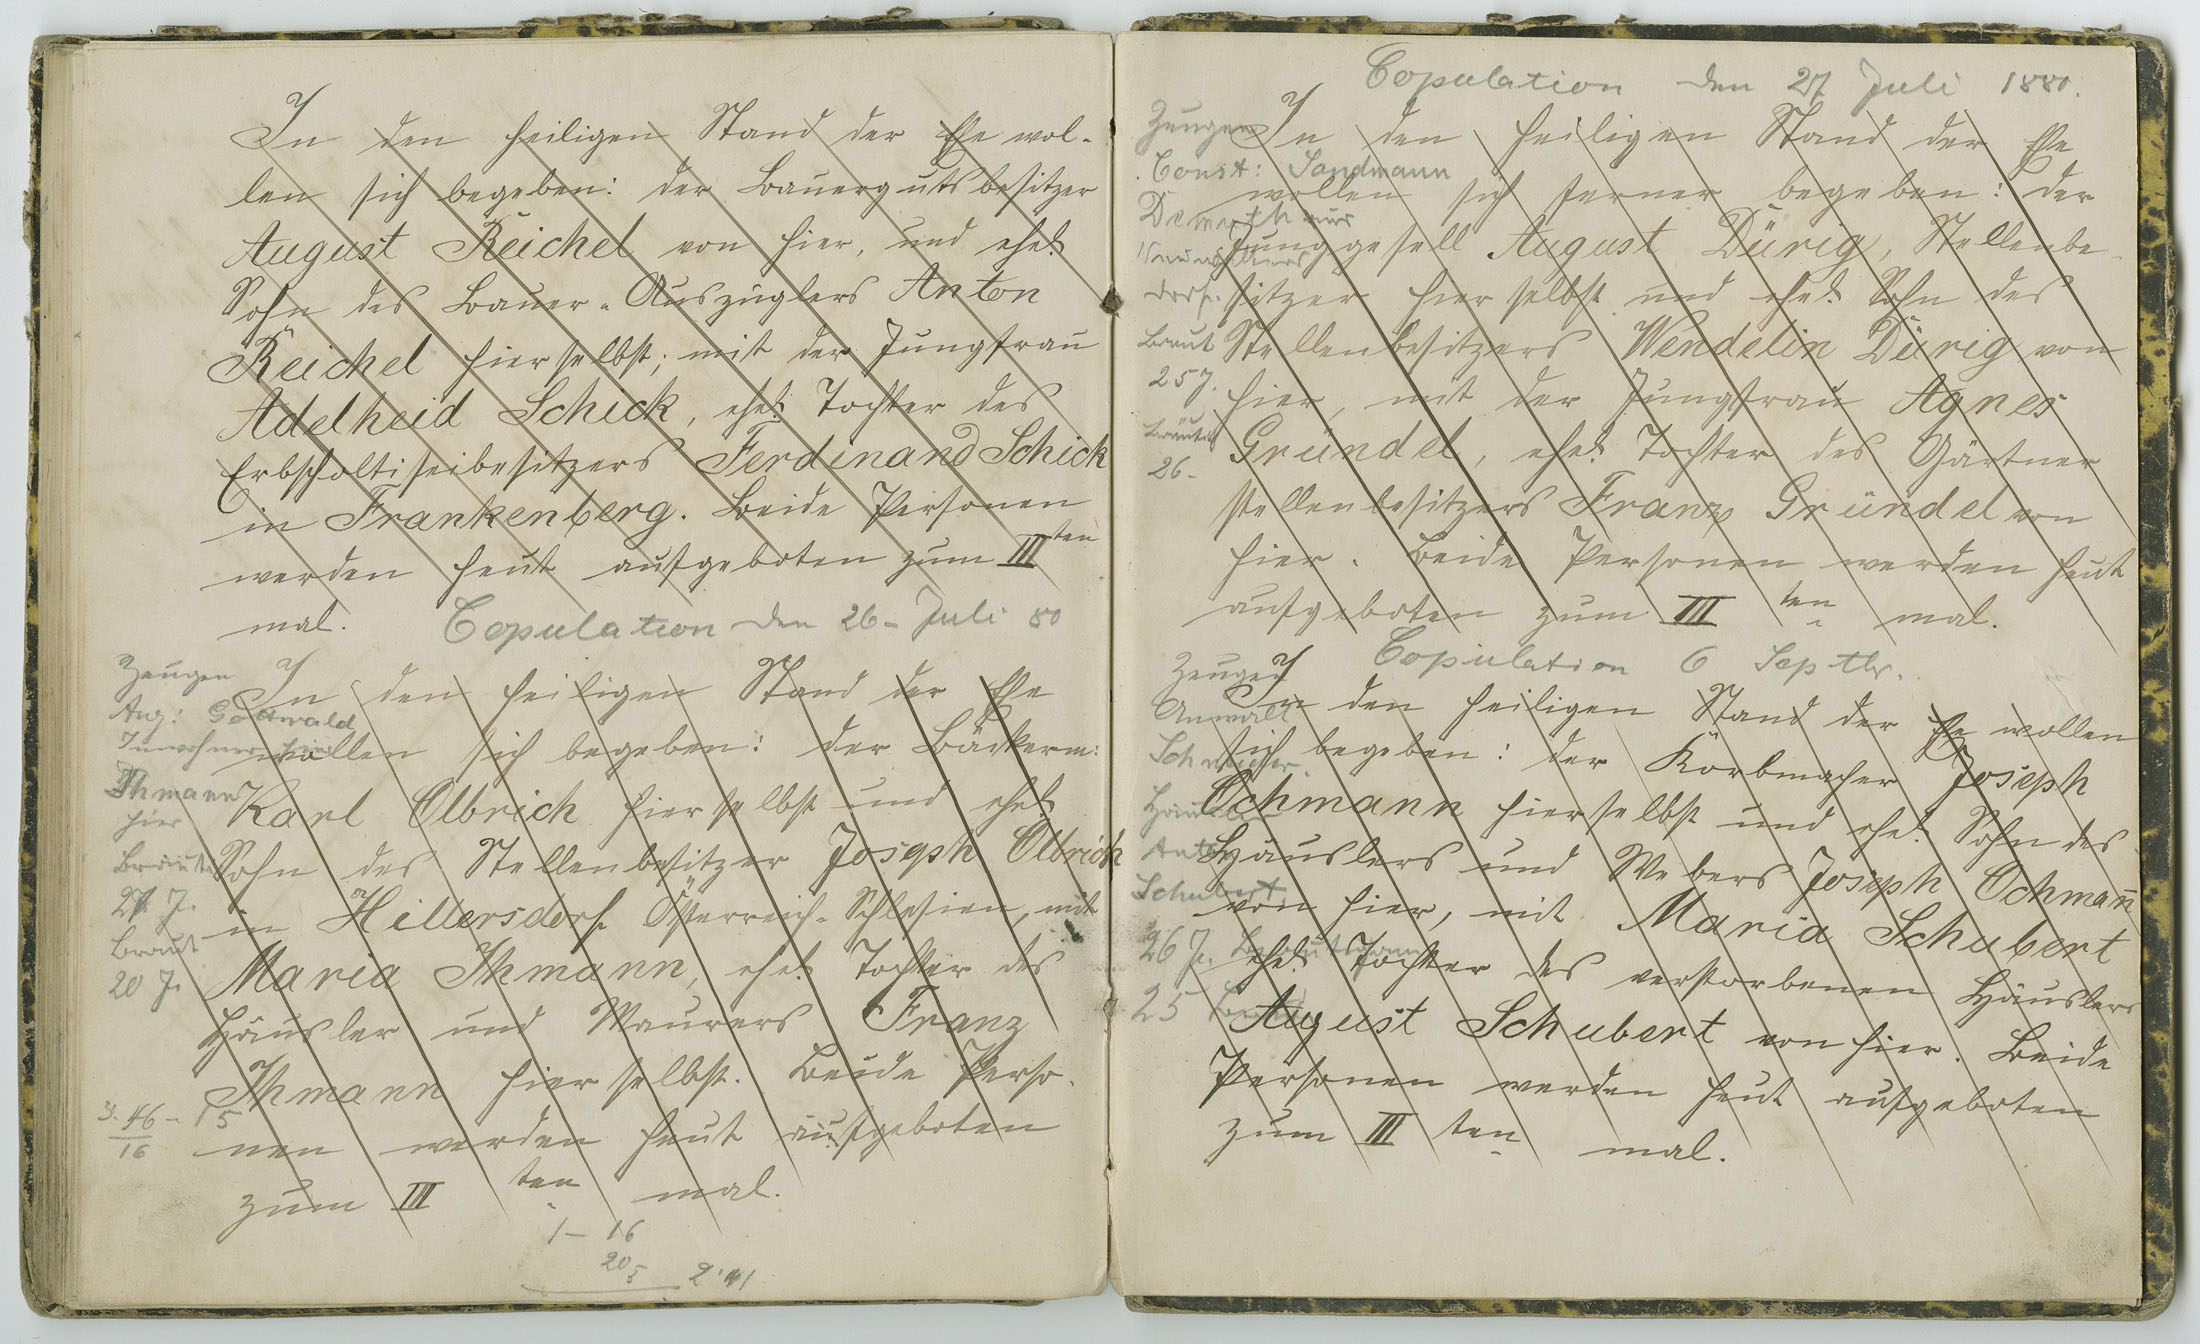 In den heiligen Stand der Ehe wol-
len sich begeben: der Bauergutsbesitzer
August Reichel von hier, und ehel.
Sohn des Bauer-Auszüglers Anton
Reichel hierselbst; mit der Jungfrau
Adelheid Schick, ehel. Tochter des
Erbscholtiseibesitzers Ferdinand Schick
in Frankenberg. Beide Personen
werden heut aufgeboten zum III ten
mal.
Copulation den 26- Juli 80
Zeugen
Aug: Gottwald
Inwohner hier
Ihmann
hier
Bräut
27 J.
Braut
20 J.
In den heiligen Stand der Ehe
wollen sich begeben: der Bäckerm:
Karl Olbrich hierselbst und ehel.
Sohn des Stellenbesitzer Joseph Olbrich
in Hillersdorf. Österreich-Schlesien, mit
Maria Ihmann, ehel. Tochter des
Häusler und Maurers Franz
Ihmann hierselbst. Beide Perso-
nen werden heut aufgeboten
zum III ten mal.
3. 46 - 15
16
1 - 16
20 5
2 41
Copulation den 27 Juli 1880.
Zeugen
Const: Sandmann
dorf.
Braut
25 J.
Bräutig
26-
In den heiligen Stand der Ehe
wollen sich ferner begeben: der
Junggesell August Dürig, Stellenbe-
sitzer hierselbst und ehel. Sohn des
Stellenbesitzers Wendelin Dürig von
hier, mit der Jungfrau Agnes
Gründel, ehel. Tochter des Gärtner
stellenbesitzers Franz Gründel von
hier. Beide Personen werden heut
aufgeboten zum III ten mal.
Copulation 6 Septbr.
Zeugen
Anwalt
Häusler
Anton
Schubert
26 J. Bräutigam
25
In den heiligen Stand der Ehe wollen
sich begeben: der Korbmacher Joseph
Ochmann hierselbst und ehel. Sohn des
Häuslers und Webers Joseph Ochman̄
von hier, mit Maria Schubert
ehel. Tochter des verstorbenen Häuslers
August Schubert von hier. Beide
Personen werden heut aufgeboten
zum III ten mal.